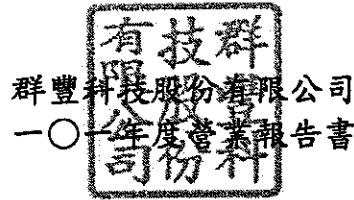 群豐科技股份有限公司
一〇一年度營業報告書
群豐科
技股份
有限公司